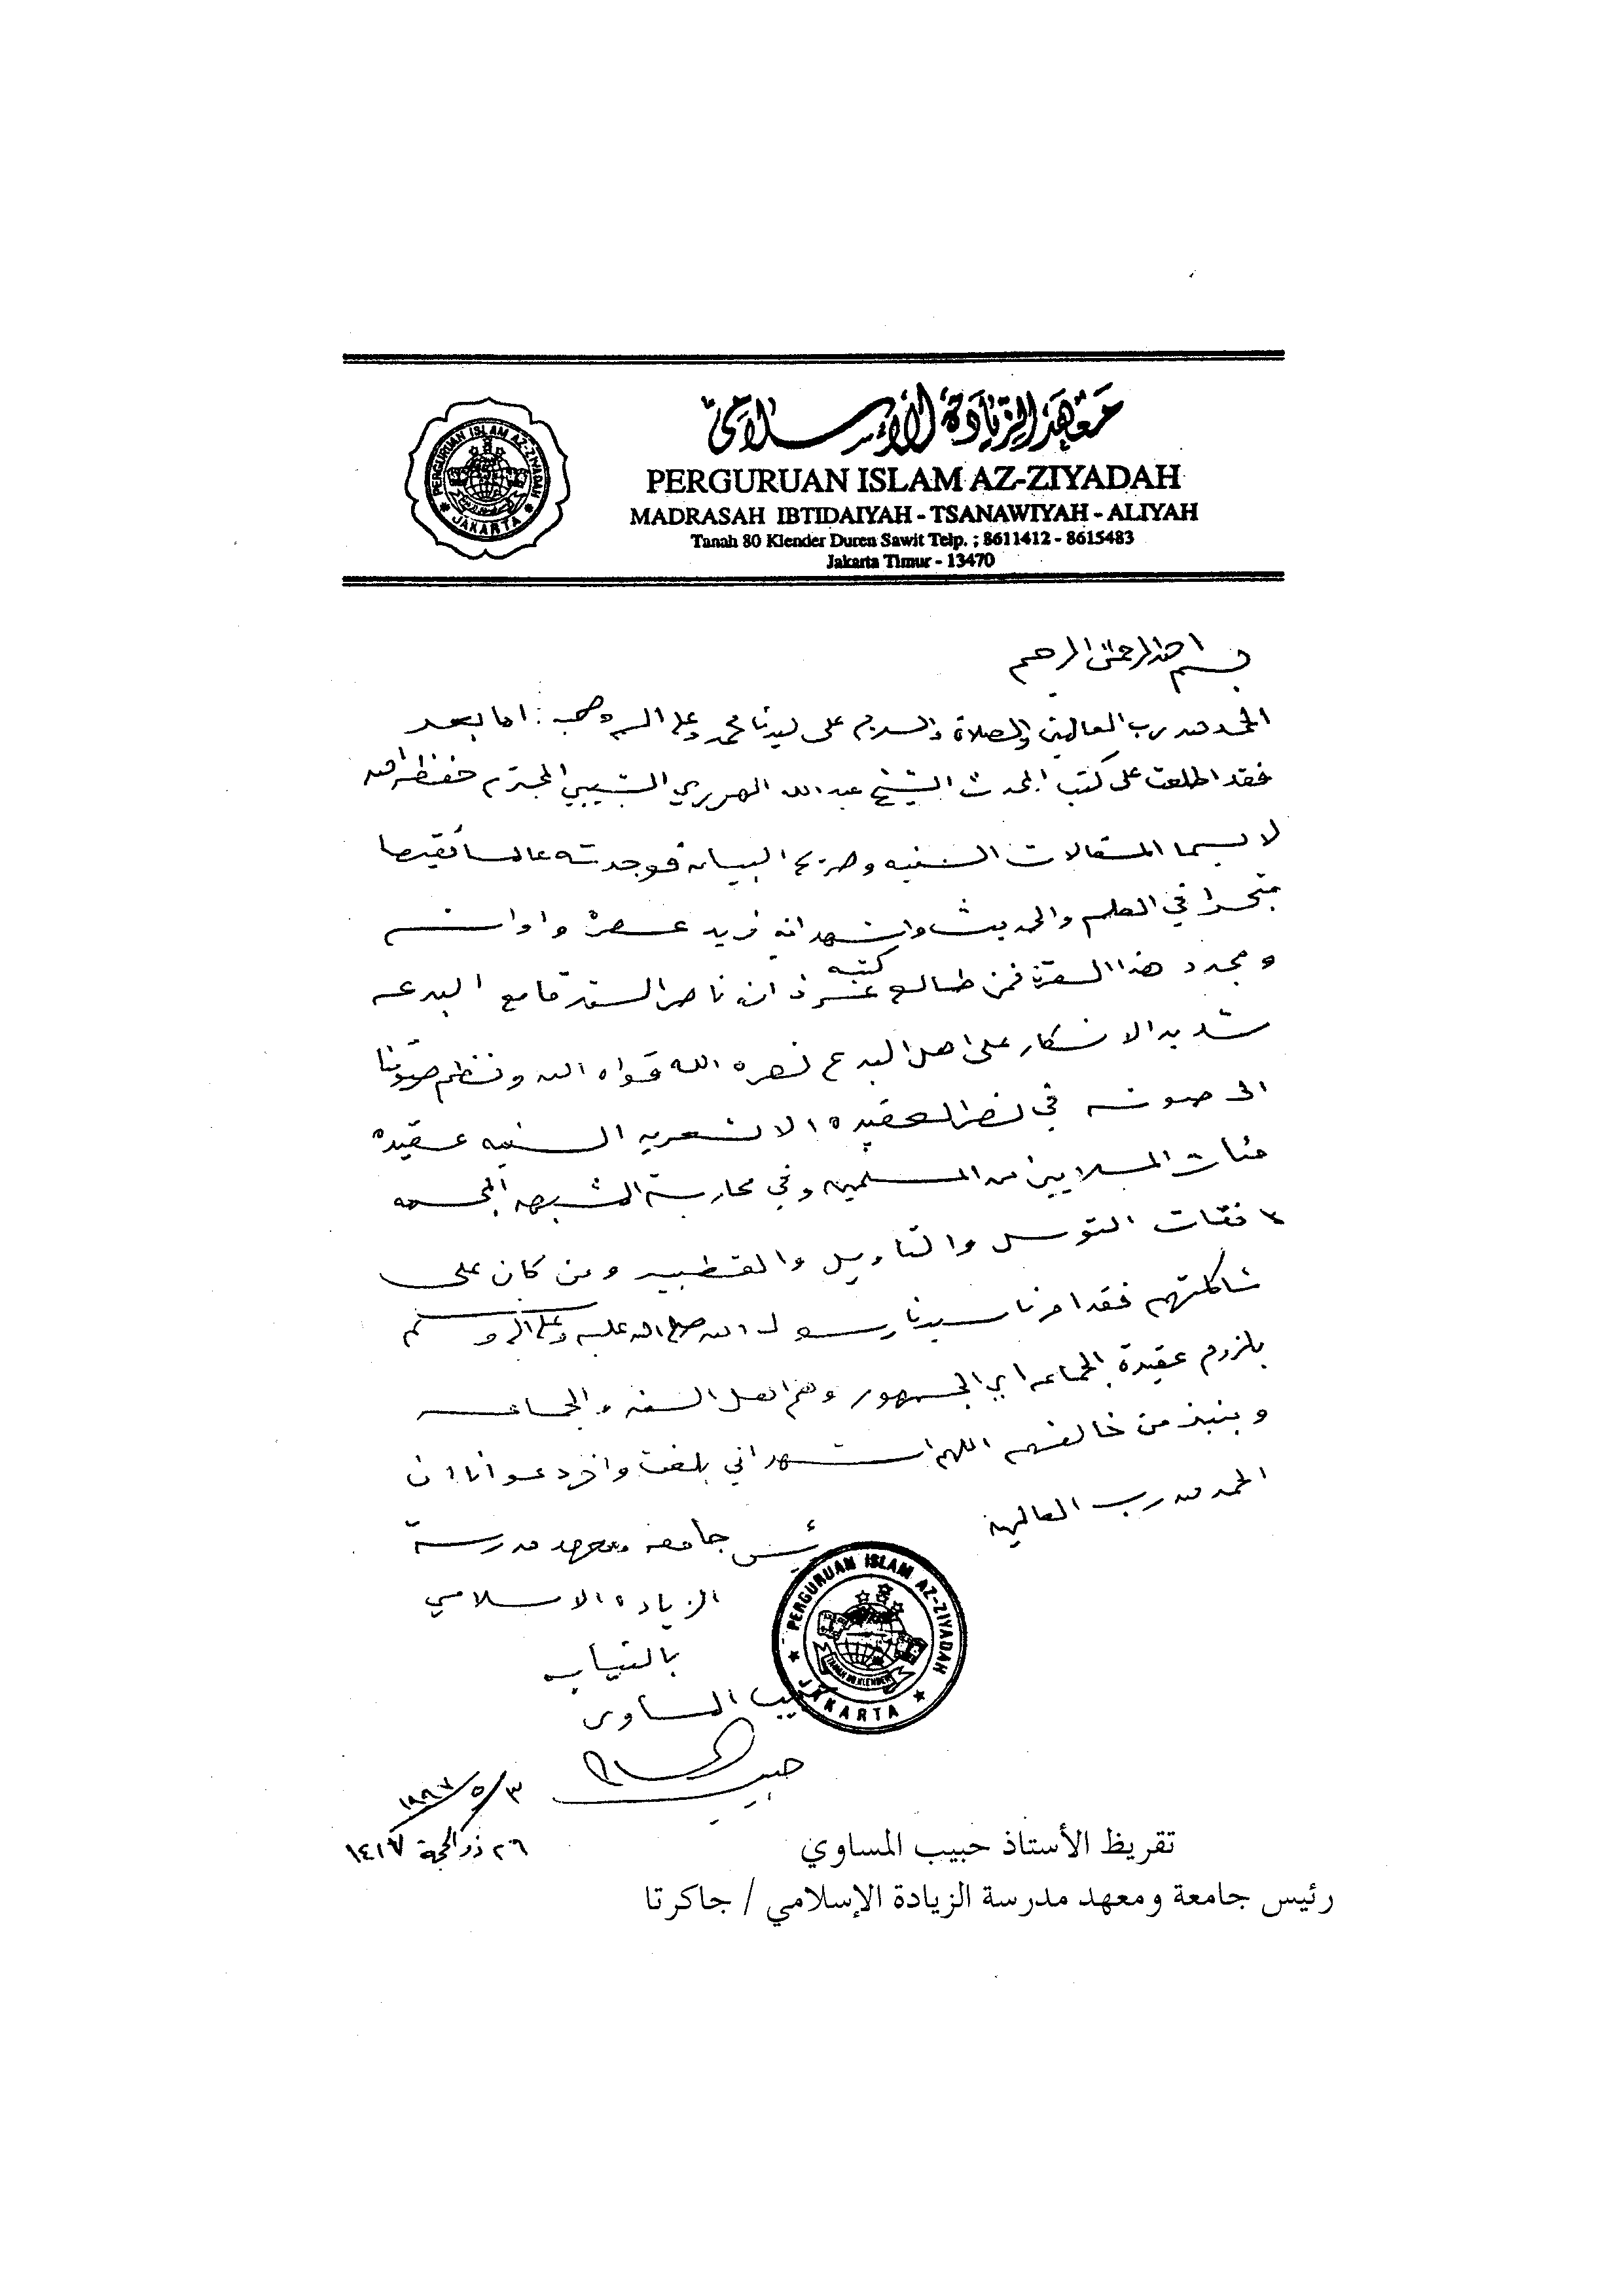 معهد الزيادة الإسلامي
PERGURUAN ISLAM AZ-ZIYADAH
MADRASAH IBTIDAIYAH - TSANAWIYAH - ALIYAH
Tanah 80 Klender Duren Sawit Telp. ; 8611412 - 8615483
Jakarta Timur - 13470
PERGURUAN ISLAM AZ-ZIYADAH
JAKARTA
بسم الله الرحمن الرحيم
الحمد لله رب العالمين والصلاة والسلام على سيدنا محمد وعلى اله وصحبه : اما بعد
فقد اطلعت على كتب المحدث الشيخ عبد الله الهرري الشيبي المحترم حفظه الله
لا سيما المقالات السنيه وصريح البيان فوجدته عالما تقيا
متبحرا في العلم والحديث واشهد انه فريد عصره واوانه
ومجدد هذا القرن فمن طالع كتبه ان ناصر السنة قامع البدعه
شديد الانكار على اهل البدع نصره الله قواه الله ونظم صوتنا
الى صوته في نصر العقيده الاشعريه السنيه عقيدة
مئات الملايين من المسلمين وفي محاربة المشبهه المجسمه
نفات التوسل والتاويل والقطبيه ومن كان على
شاكلتهم فقد امرنا سيدنا رسول الله صلى الله عليه وعلى اله وسلم
بلزوم عقيدة الجماعه اي الجمهور وهم اهل السنه والجماعه
وبنبذ من خالفهم اللهم اشهد اني بلغت واخر دعوانا ان
الحمد لله رب العالمين
رئيس جامعه ومعهد مدرسة
الزياده الاسلامي
بالنيابه
حبيب المساوى
PERGURUAN ISLAM AZ-ZIYADAH
TANAH 80 KLENDER
JAKARTA
حبيب
٣/٥/١٩٩٧
٢٦ ذو الحجة ١٤١٧
تقريظ الأستاذ حبيب المساوي
رئيس جامعة ومعهد مدرسة الزيادة الإسلامي / جاكرتا